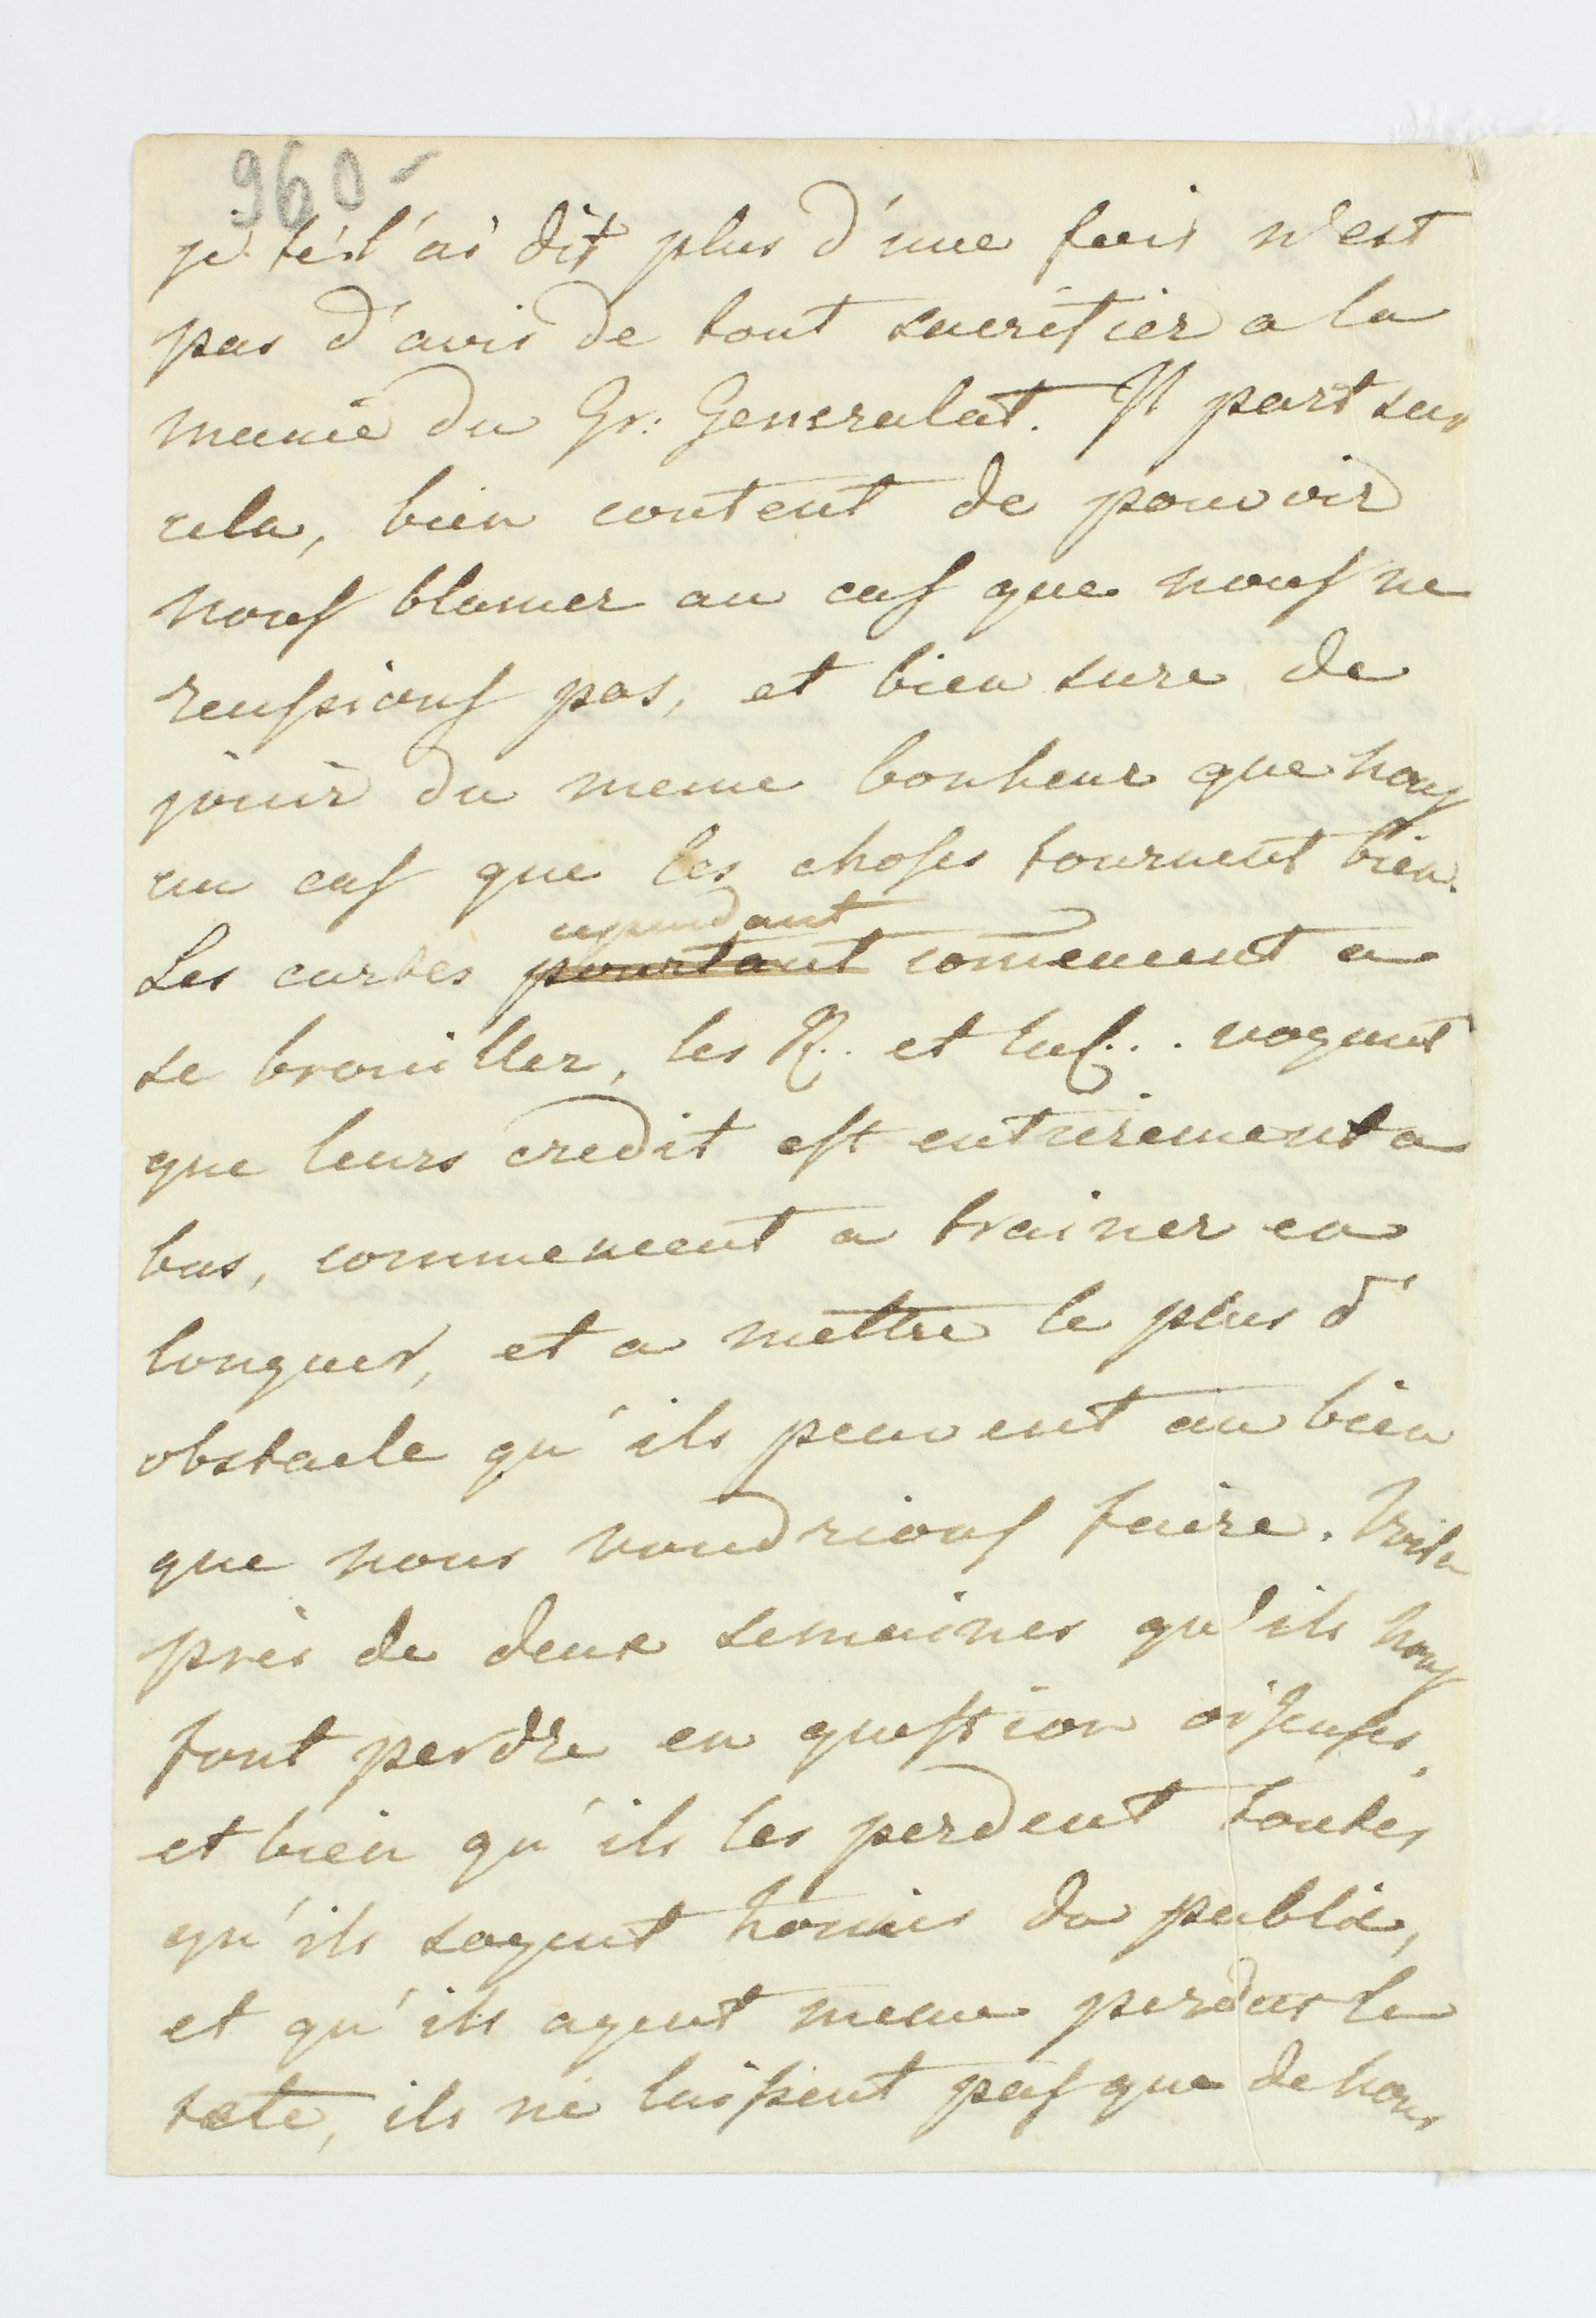 960-
je te l'ai dit plus d'une fois n'est
pas d'avis de tout sacrifier a la
manie du Gr: Generalat. Il part sur
cela, bien content de pouvoir
nous blamer au cas que nous ne
reussions pas, et bien sure de
jouir du meme bonheur que nous
au cas que les choses tournent bien.
cependant
Les cartes pourtant comencent a
se brouiller, les R.. et voyent
que leurs credit est entierement a
bas, commencent a trainer en
longuer, et a mettre le plus d'
obstacle qu'ils peuvent au bien
que nous voudrions faire. Voila
près de deux semaines qu'ils nous
font perdre en question oiseuses,
et bien qu'ils les perdent toutes
qu'ils soyent honnis du public,
et qu'ils ayent meme perdus la
tete, ils ne laissent pas que de nous